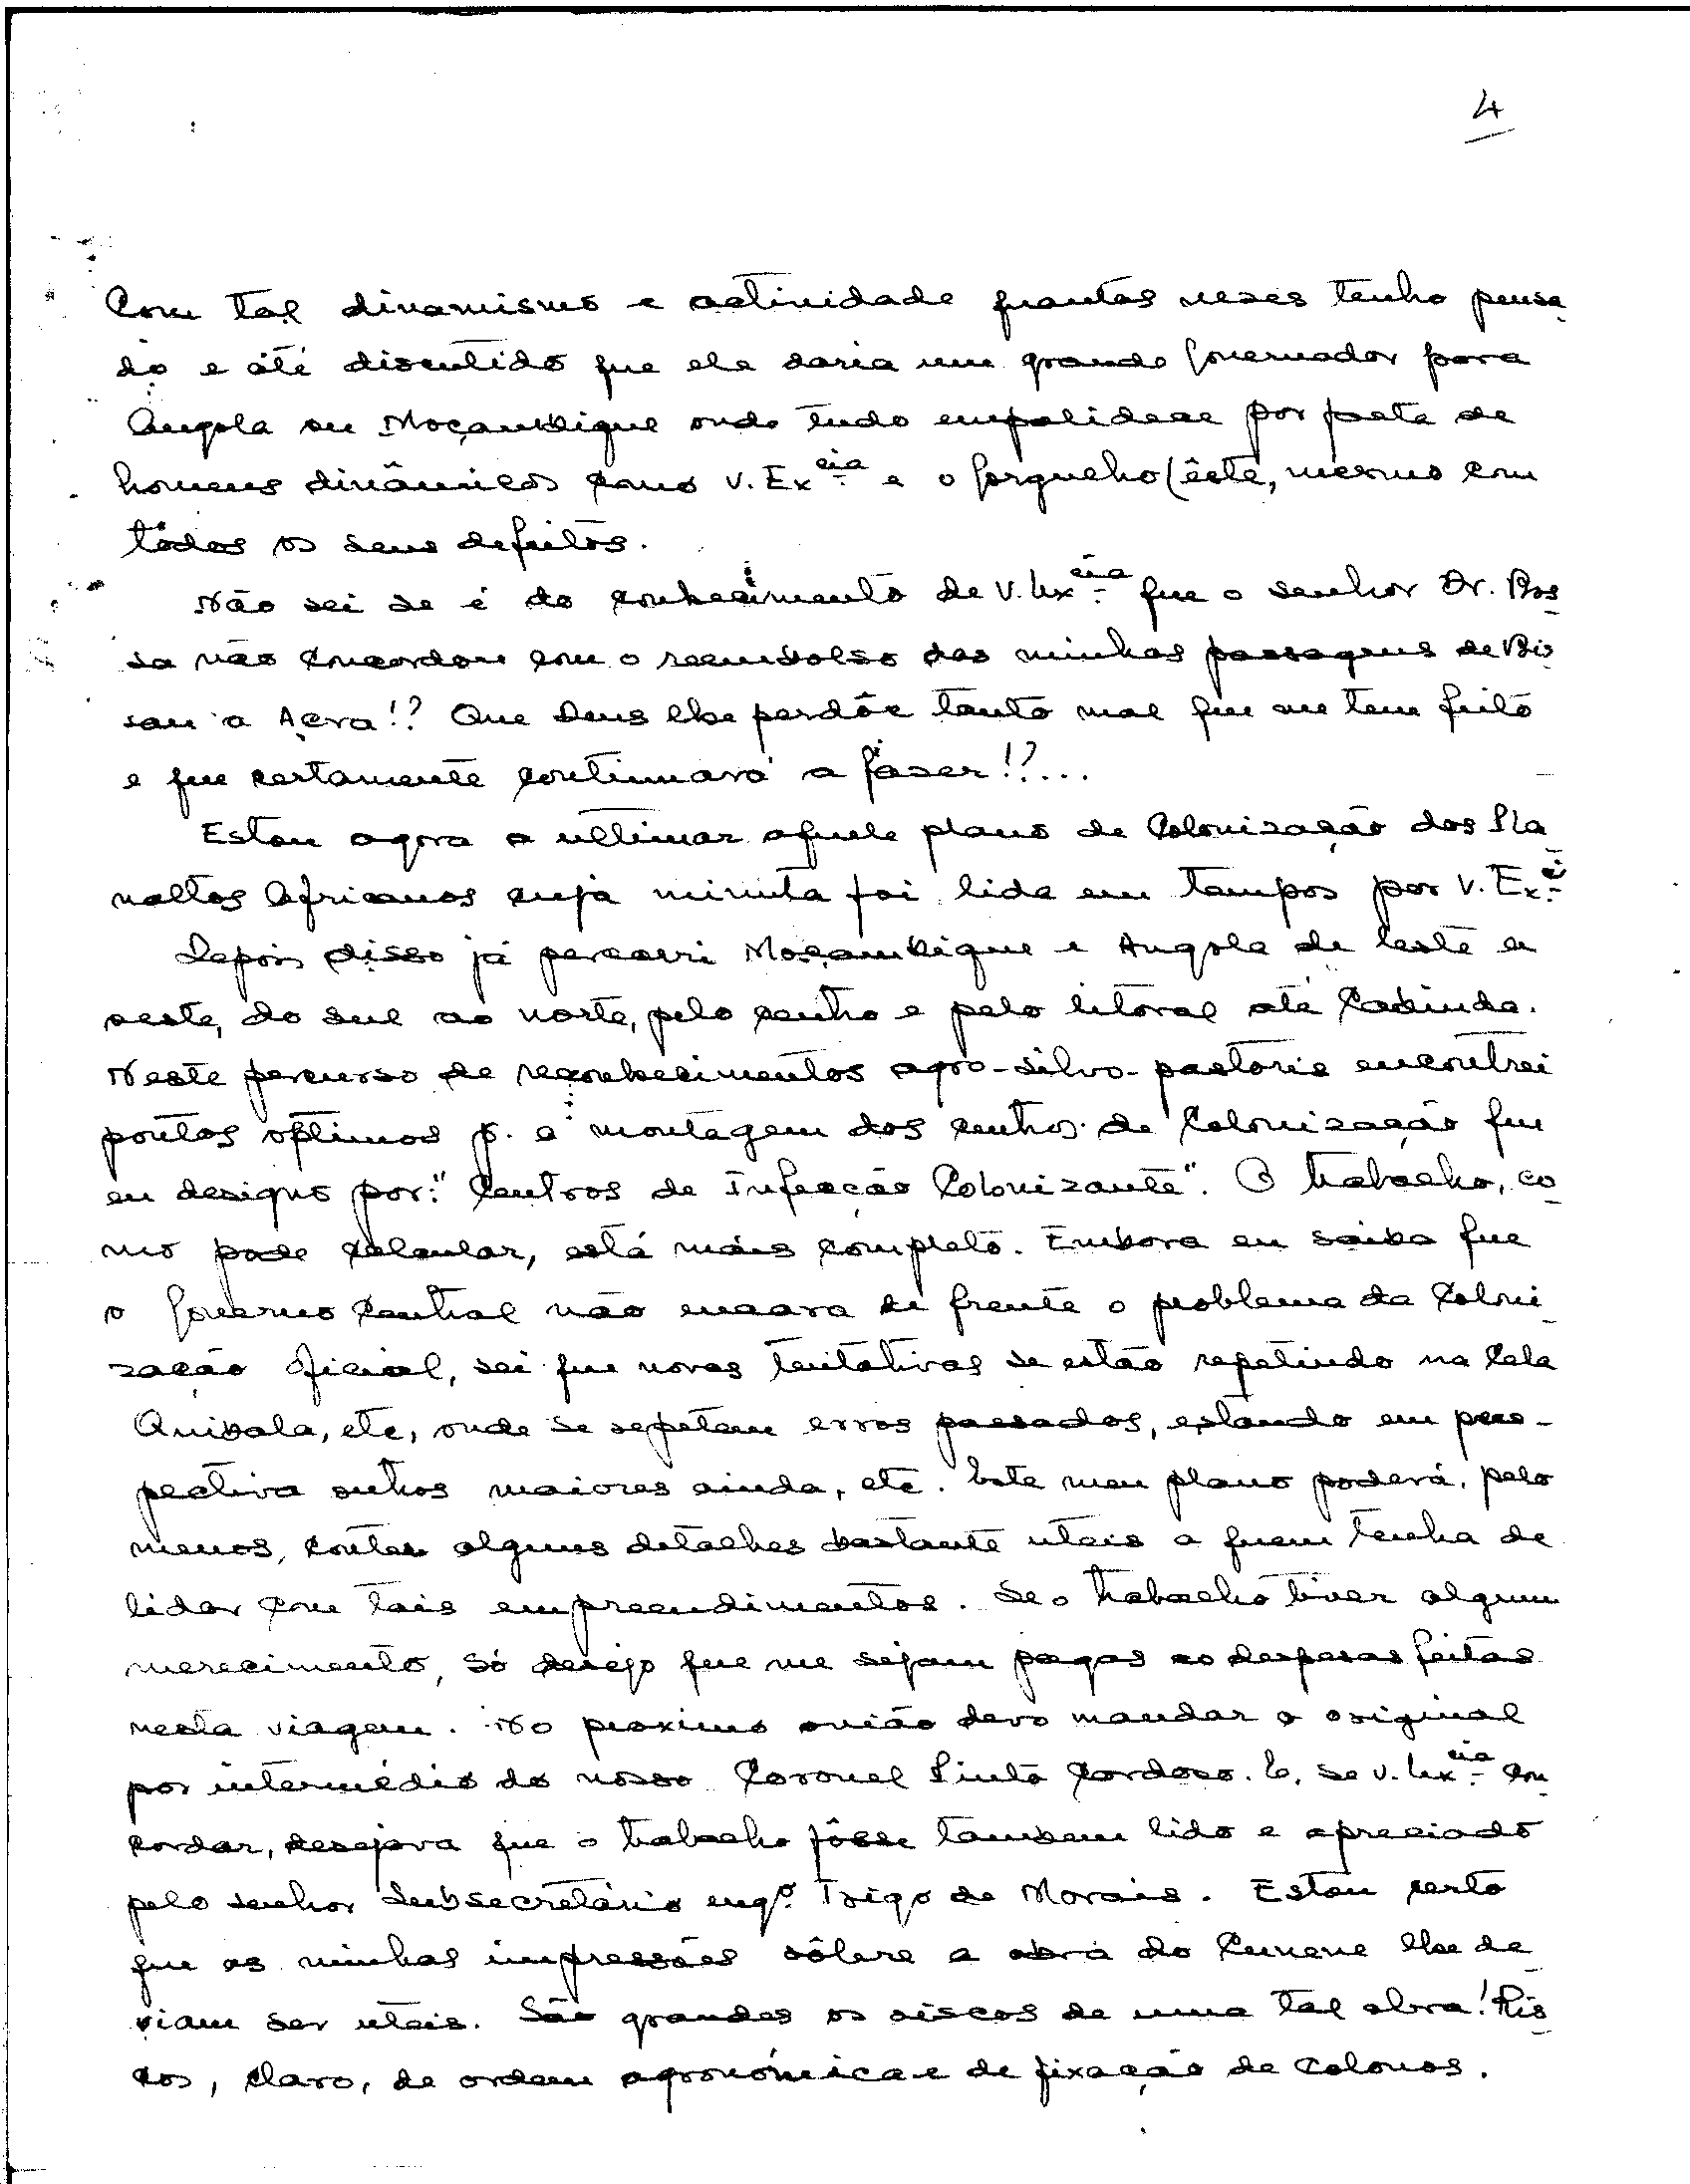 4
Com tal dinamismo e actividade quantas vezes tenho pensa-
do e até discutido que ele daria um grande Governador para
Angola ou Moçambique onde tudo empalidece por falta de
homens dinâmicos como V. Ex.cia e o Jorguelho (êste, mesmo com
tôdos os seus defeitos.
Não sei se é do conhecimento de V. Ex.cia que o senhor Dr. Bos-
sa não concordou com o reembolso das minhas passagens de Bis-
sau a Acra!? Que Deus lhe perdôe tanto mal que me tem feito
e que certamente continuará a fazer!?...
Estou agora a ultimar aquele plano de Colonização dos Pla-
naltos Africanos cuja minuta foi lida em tempos por V. Ex.ci
Depois disso já percorri Moçambique e Angola de leste a
oeste, do sul ao norte, pelo centro e pelo litoral até Cabinda.
Neste percurso de reconhecimentos agro-silvo-pastoris encontrei
pontos optimos p. a montagem dos centros de Colonização que
eu designo por: "Centros de Infecção Colonizante". O trabalho, co-
mo pode calcular, está mais completo. Embora eu saiba que
o Governo Central não encara de frente o problema da Coloni-
zação oficial, sei que novas tentativas se estão repetindo na Cela
Quibala, etc, onde se repetem erros passados, estando em pers-
pectiva outros maiores ainda, etc. Este meu plano poderá, pelo
menos, conter alguns detalhes bastante uteis a quem tenha de
lidar com tais empreendimentos. Se o trabalho tiver algum
merecimento, só desejo que me sejam pagas as despesas feitas
nesta viagem. No proximo avião devo mandar o original
por intermédio do nosso Coronel Pinto Cardoso. E, se V. Ex.cia con-
cordar, desejava que o trabalho fôsse tambem lido e apreciado
pelo senhor Subsecretário engº. Trigo de Morais. Estou certo
que as minhas impressões sôbre a obra do Cunene lhe de-
viam ser uteis. São grandes os riscos de uma tal obra! Ris-
cos, claro, de ordem agronómica e de fixação de colonos.